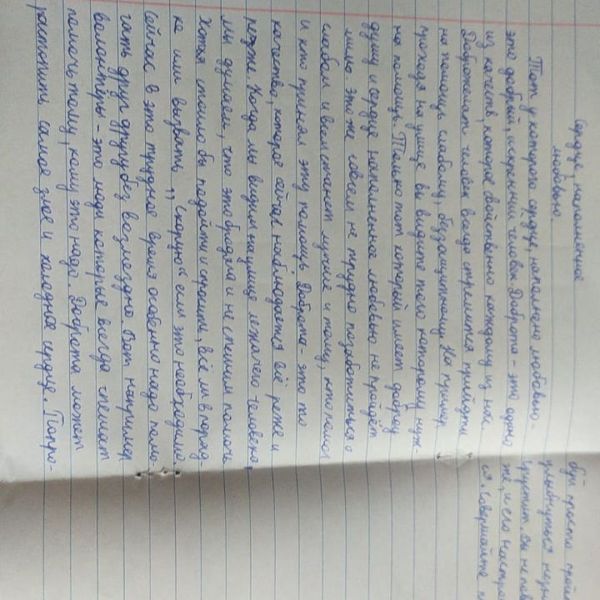 Сердце, наполненное
любовью.
Тот у которого сердце, наполнено любовью -
это добрый, искренний человек. Доброта - это одно
из качеств, которое свойственно каждому из нас.
Доброжелат человек всегда стремится прийти
на помощь слабому, беззащитному. На пример,
проходя на улице вы видите того которому нуж-
на помощь. Только тот который имеет добрую
душу и сердце наполненное любовью не пройдёт
мимо это же совсем не трудно позаботиться о
слабом и вам станет лучше и тому, кто помог
и кто принял эту помощь. Доброта - это то
качество, которое сейчас наблюдается всё реже и
реже. Когда мы видим на улице лежачего человека,
мы думаем, что это бродяга и не спешим помочь
Хотя стоило бы подойти и спросить, всё ли в поряд-
ке или вызвать ,,скорую" если это необходимо
Сейчас в это трудное время особенно надо помо-
гать друг другу без возмездно. Вот например
волонтёры - это люди которые всегда спешат
помочь тому, кому это надо. Доброта может
растопить самое злое и холодное сердце. Попро-
буй просто прой
улыбнуться незна
грустит. Вы не
же, и его настро
ся. Совершайте